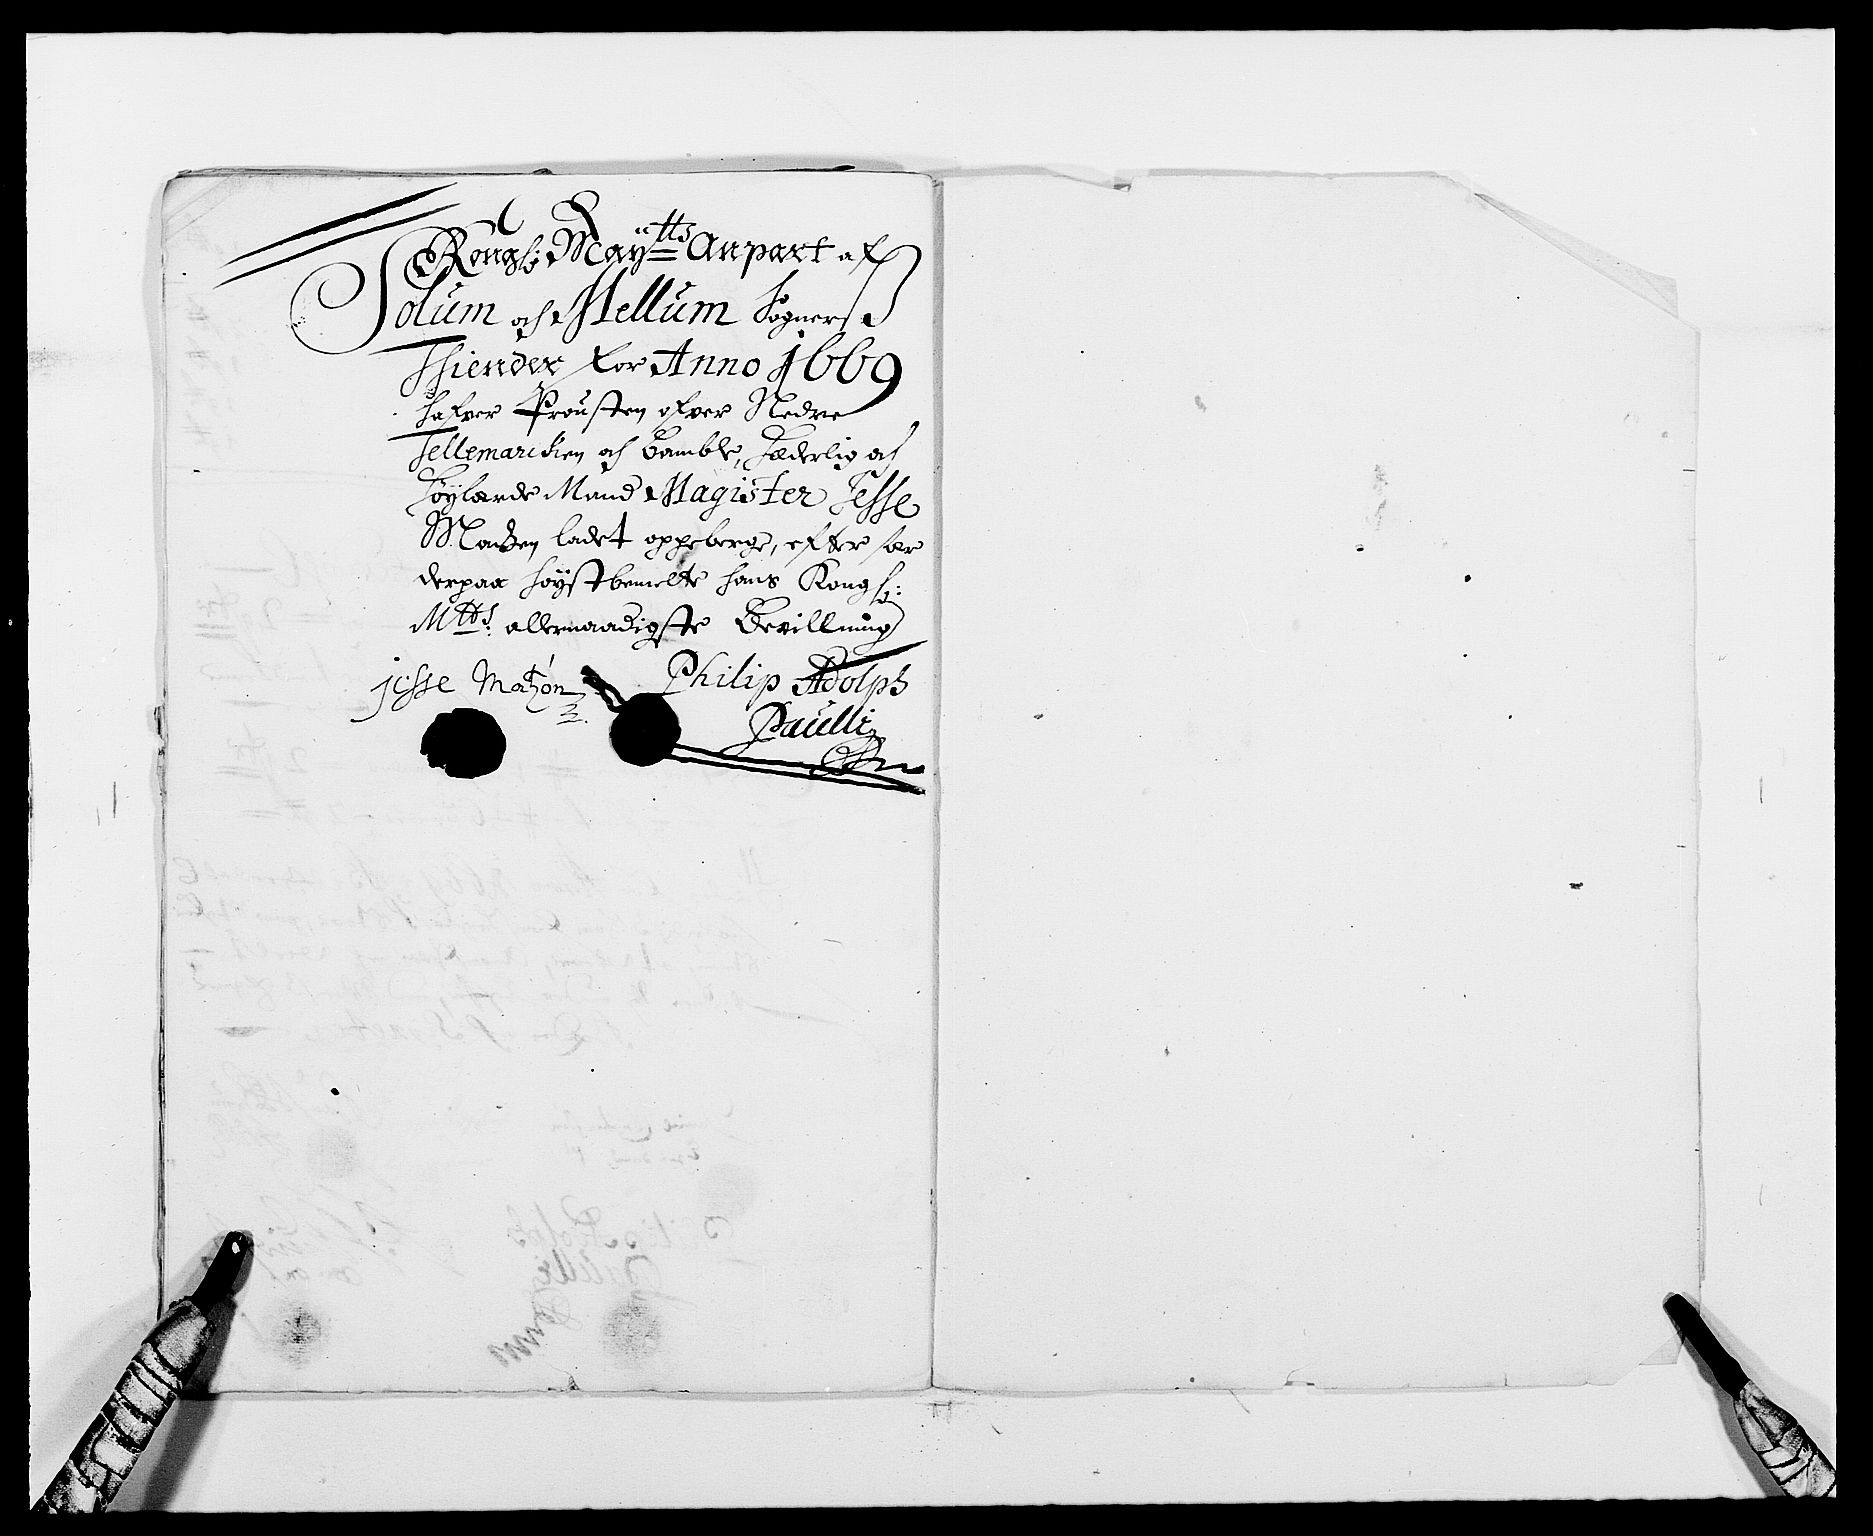 Kongl: Maÿtts Anpart af
Solum och Mellum Sogners
Thiender for Anno 1669
hafver Prousten ofver Nedre
Tellemarcken och Bamble, Hæderlig och
Høylærde Mand Magister Jesse
Madsen ladet oppeberge, efter
derpaa høystbemelte hans Kongl:
Mtts: allernaadigste Bevillning
Jesse Matzøn Philip Adolph
Paulli